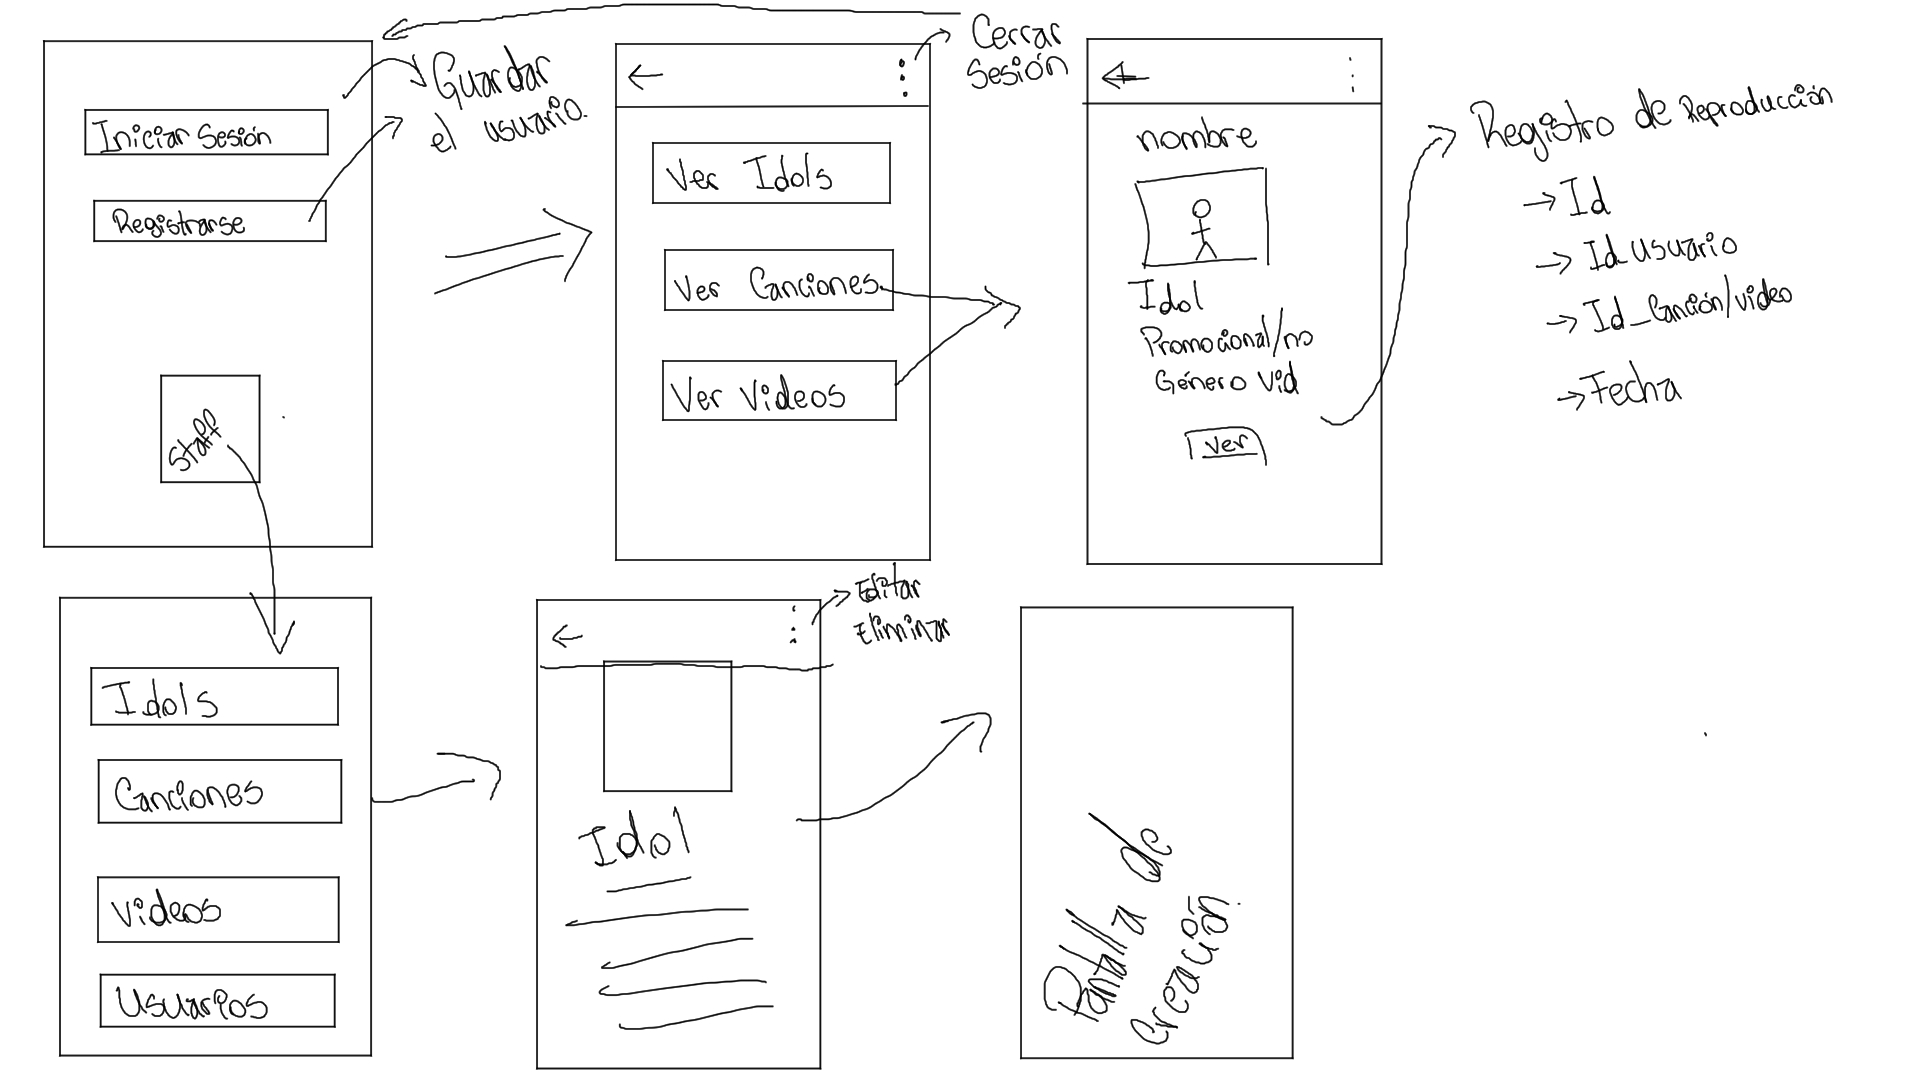 Iniciar Sesión
Registrarse
Staff
Guardar
el usuario.
Cerrar
Sesión
Ver Idols
Ver Canciones
Ver Videos
nombre
Idol
Promocional/no
Género Vid
Ver
Registro de Reproducción
→ Id
→ Id_usuario
→ Id_Canción/video
→ Fecha
Idols
Canciones
Videos
Usuarios
Editar
Eliminar
Idol
Pantalla de
Creación